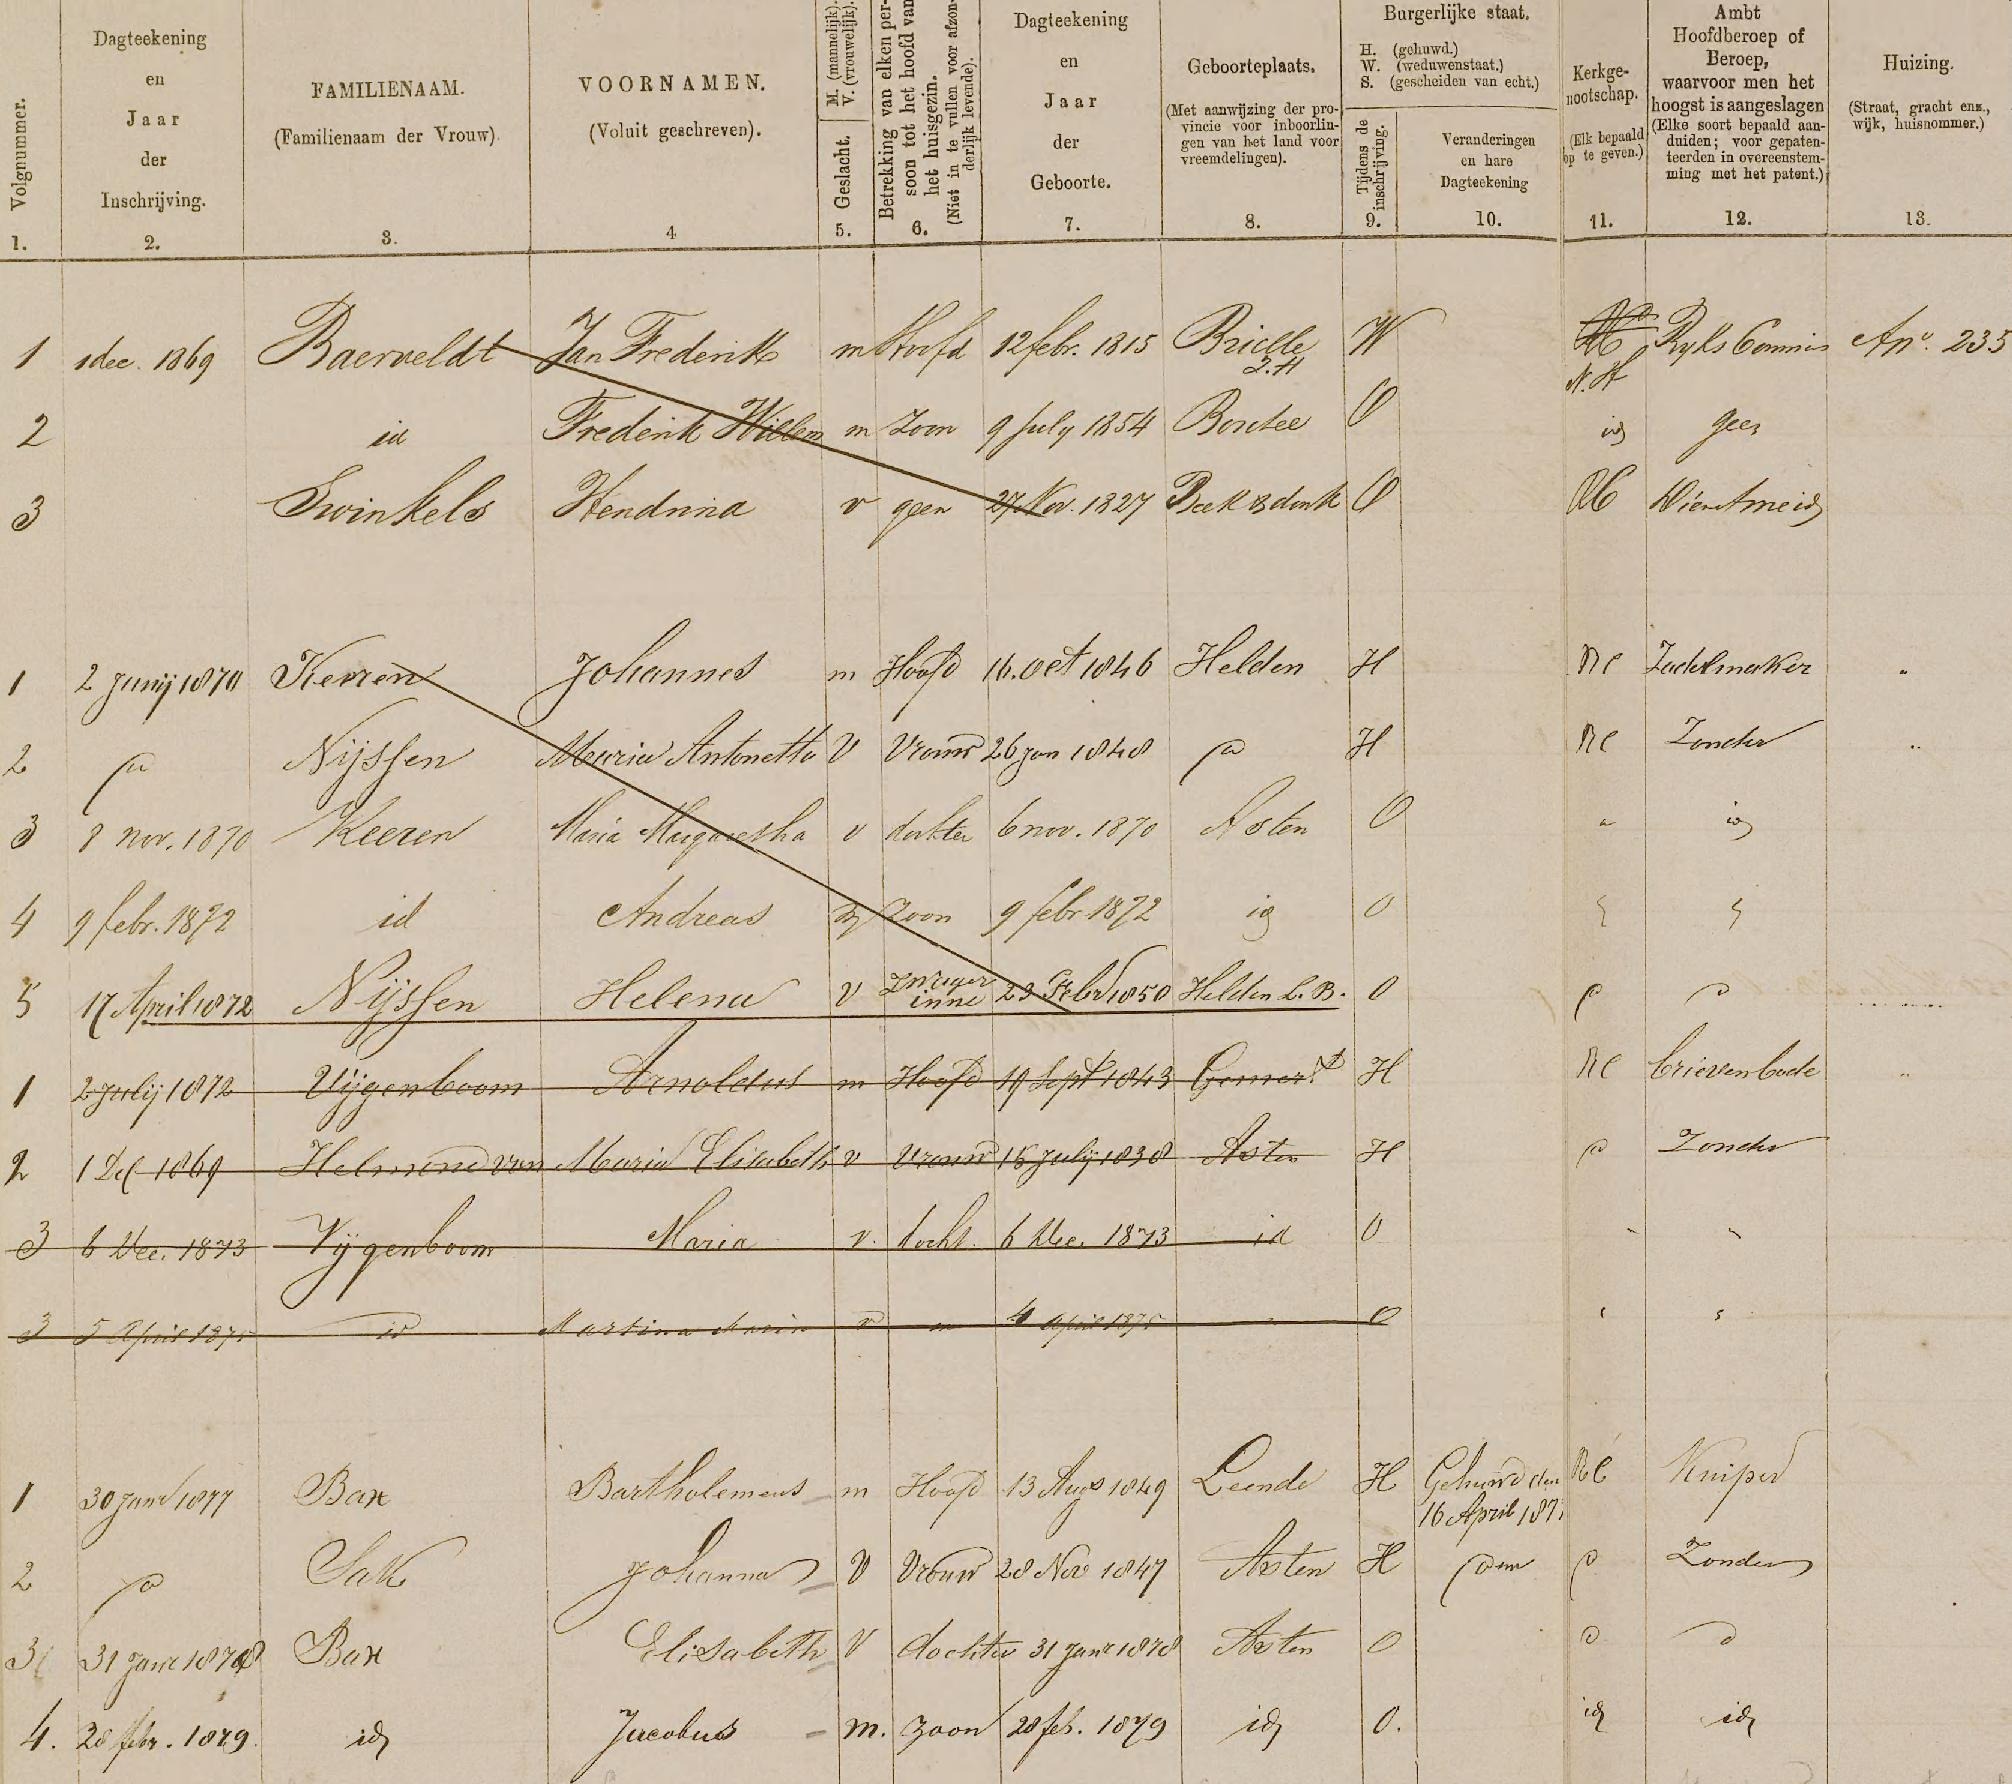 Volgnummer.
1.
Dagteekening
en
Jaar
der
Inschrijving.
2.
FAMILIENAAM.
(Familienaam der Vrouw).
3.
VOORNAMEN.
(Voluit geschreven).
4
M. (mannelijk).
V. (vrouwelijk).
Geslacht.
5.
Betrekking van elken per-
soon tot het hoofd van
het huisgezin.
(Niet in te vullen voor afzon-
derlijk levende).
6.
Dagteekening
en
Jaar
der
Geboorte.
7.
Geboorteplaats.
(Met aanwijzing der pro-
vincie voor inboorlin-
gen van het land voor
vreemdelingen).
8.
Burgerlijke staat.
H. (gehuwd.)
W. (weduwenstaat.)
S. (gescheiden van echt.)
Tijdens de
inschrijving.
9.
Veranderingen
en hare
Dagteekening
10.
Kerkge-
nootschap.
(Elk bepaald
op te geven.)
11.
Ambt
Hoofdberoep of
Beroep,
waarvoor men het
hoogst is aangeslagen
(Elke soort bepaald aan-
duiden; voor gepaten-
teerden in overeenstem-
ming met het patent.)
12.
Huizing.
(Straat, gracht enz.,
wijk, huisnommer.)
13.
1 1 dec. 1869 Baerveldt Jan Frederik m Hoofd 12 febr. 1815 Brielle W RC Ryks Commis 235
Z.H N.H
2 id Frederik Willem m Zoon 9 July 1854 O id geen
3 Swinkels Hendrina v geen 27 Nov. 1827 Beek & donk O RC Dienstmeid
1 2 Junij 1870 Keeren Johannes m Hoofd 16. oct 1846 Helden H RC Zadelmaker "
2 Nijssen Maria Antonetta V Vrouw 26 jan 1848 H RC Zonder "
3 8 nov. 1870 Keeren Maria Margaretha v dochter 6 nov. 1870 Asten O " id
4 9 febr. 1872 id Andreas m Zoon 9 febr 1872 id O
5 17 April 1872 Nijssen Helena V 23 Febr 1850 Helden L. B. O
1 2 Julij 1872 Vijgenboom Arnoldus m Hoofd 19 Sept 1843 Gemert H RC brievenbode "
2 1 Dec 1869 Helmond van Maria Elisabeth v Vrouw 15 Julij 1838 Asten H Zonder
3 6 Dec. 1873 Vijgenboom Maria v. docht. 6 Dec. 1873 id O " "
3 5 April 1875 id Martina Maria v 4 April 1875 O
1 30 Janr 1877 Bax Bartholemeus m Hoofd 13 Augs 1849 Leende H Gehuwd den RC Kuiper
16 April 187
2 Sak Johanna V Vrouw 28 Nov 1847 Asten H Zonder
3 31 Janr 1878 Bax Elisabeth V dochter 31 Janr 1878 Asten O
4. 28 febr. 1879. id Jacobus m. zoon 28 feb. 1879 id O. id id